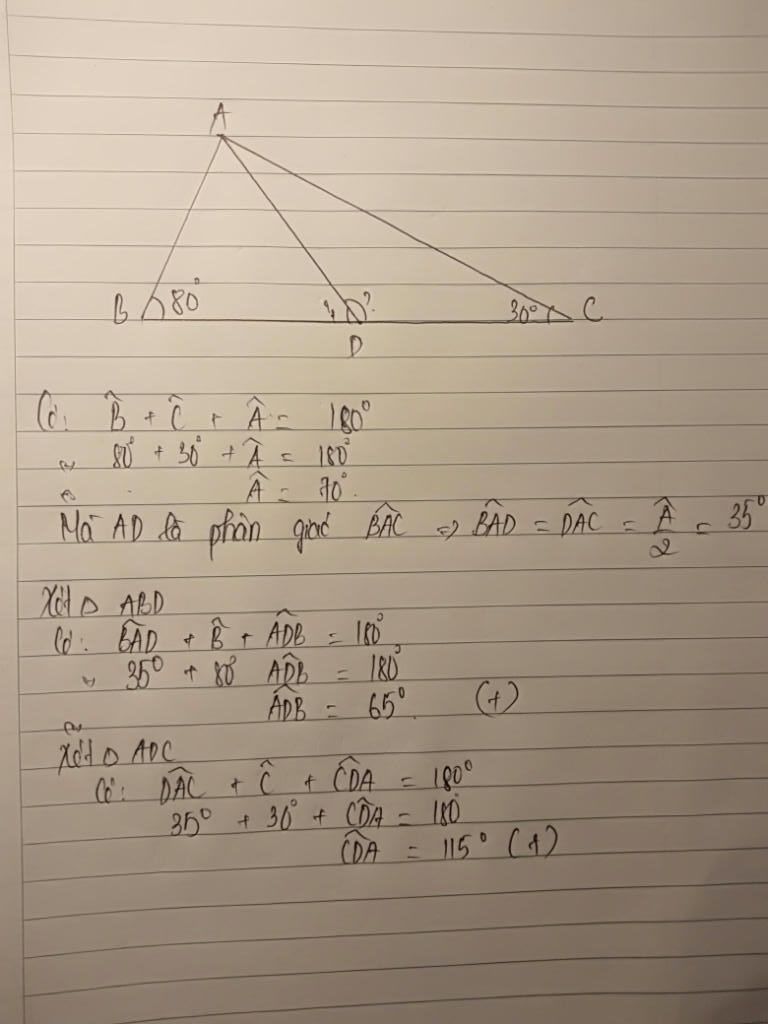 A
B 80° ? ? 30° C
D
Có: B̂ + Ĉ + Â = 180°
80° + 30° + Â = 180°
Â = 70°.
Mà AD là phân giác BAC ⇒ BAD = DAC = Â/2 = 35°
Xét Δ ABD
Có: BAD + B̂ + ADB = 180°
35° + 80° ADB = 180°
ADB = 65°. (+)
Xét Δ ADC
Có: DAC + Ĉ + CDA = 180°
35° + 30° + CDA = 180
CDA = 115° (+)